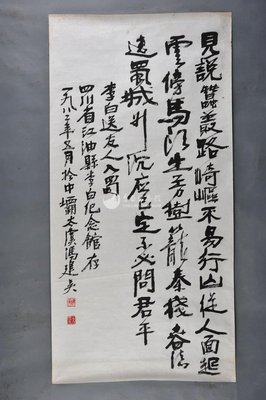 見說蠶叢路崎嶇不易行山從人面起
雲傍馬頭生芳樹籠秦棧春流
遶蜀城升沉應已定不必問君平
李白送友人入蜀
四川省江油縣李白纪念館存
一九八二年五月於中壩太虞馮建吴